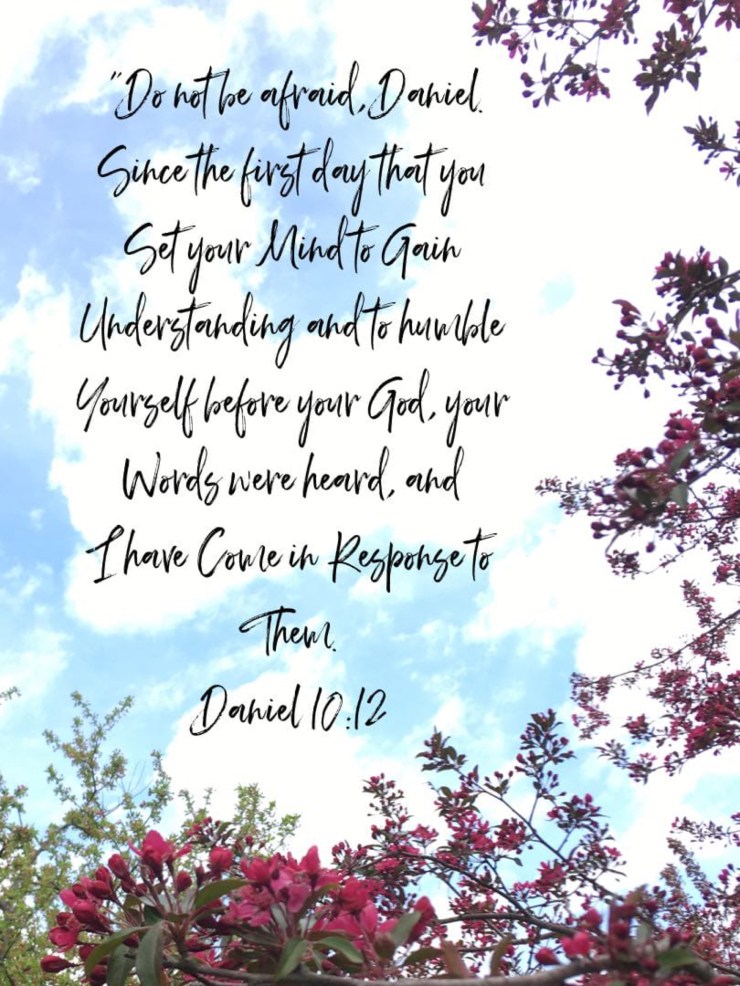 "Do not be afraid, Daniel.
Since the first day that you
Set your Mind to Gain
Understanding and to humble
Yourself before your God, your
Words were heard, and
I have Come in Response to
Them.
Daniel 10:12